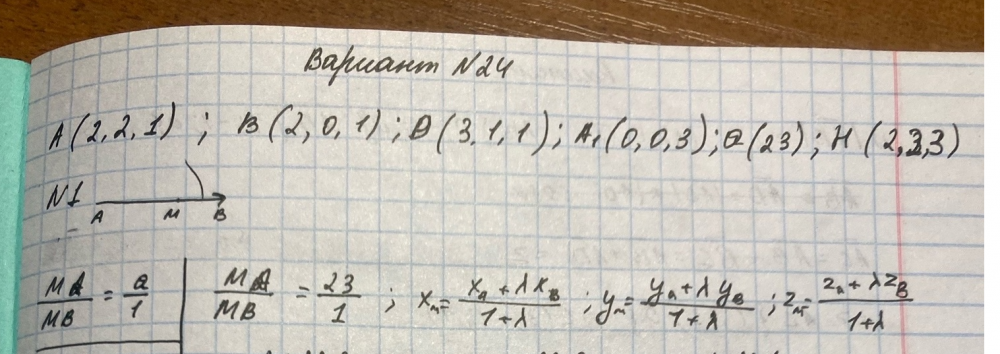 Вариант N24
A(2,2,1); B(2,0,1); D(3,1,1); A₁(0,0,3); a(23); H(2,3,3)
N1
A M B
MA/MB = a/1 MA/MB = 23/1; xₘ = (xₐ + λx_B)/(1+λ); yₘ = (yₐ + λy_B)/(1+λ); zₘ = (zₐ + λz_B)/(1+λ)